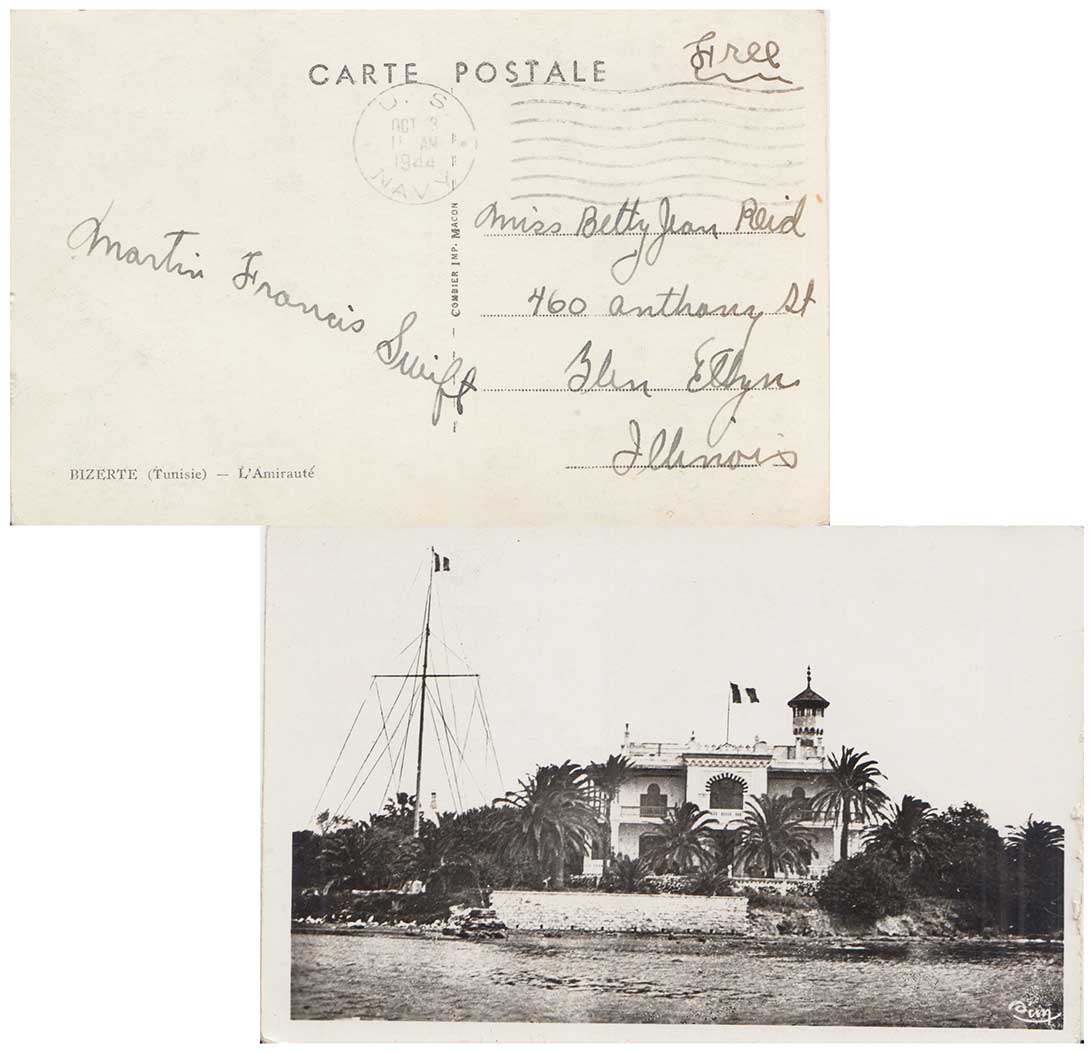 Free
CARTE POSTALE
U. S.
OCT 3
11 AM
1944
NAVY
Miss Betty Jean Reid
460 Anthony St
Glen Ellyn
Illinois
Martin Francis Swift
COMBIER IMP. MACON
BIZERTE (Tunisie) — L'Amirauté
Cim